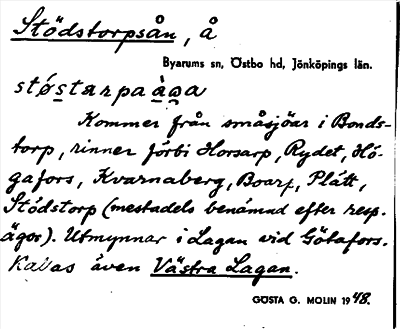 Stödstorpsån, å
Byarums sn, Östbo hd, Jönköpings län.
støstarpaàna
Kommer från småsjöar i Bonds-
torp, rinner förbi Horsarp, Rydet, Hö-
gafors, Kvarnaberg, Boarp, Plått,
Stödstorp (mestadels benämnd efter resp.
ägor). Utmynnar i Lagan vid Götafors.
Kallas även Västra Lagan.
GÖSTA G. MOLIN 1948.